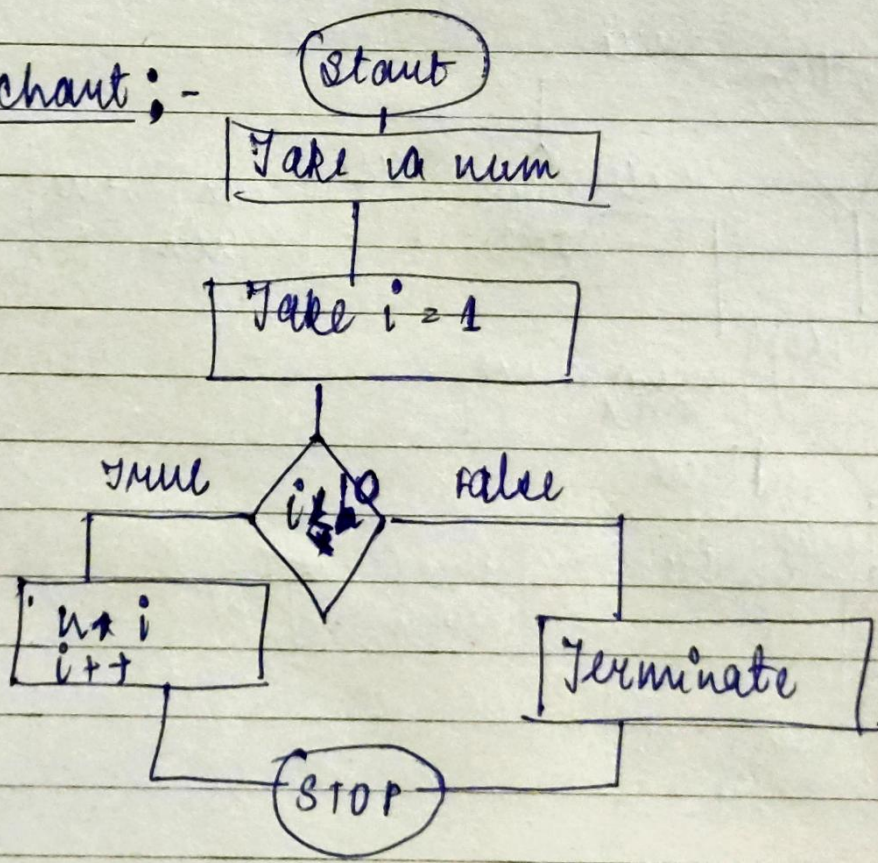 chart :-
Start
Take a num
Take i = 1
True
i ≤ 10
False
n * i
i++
Terminate
STOP